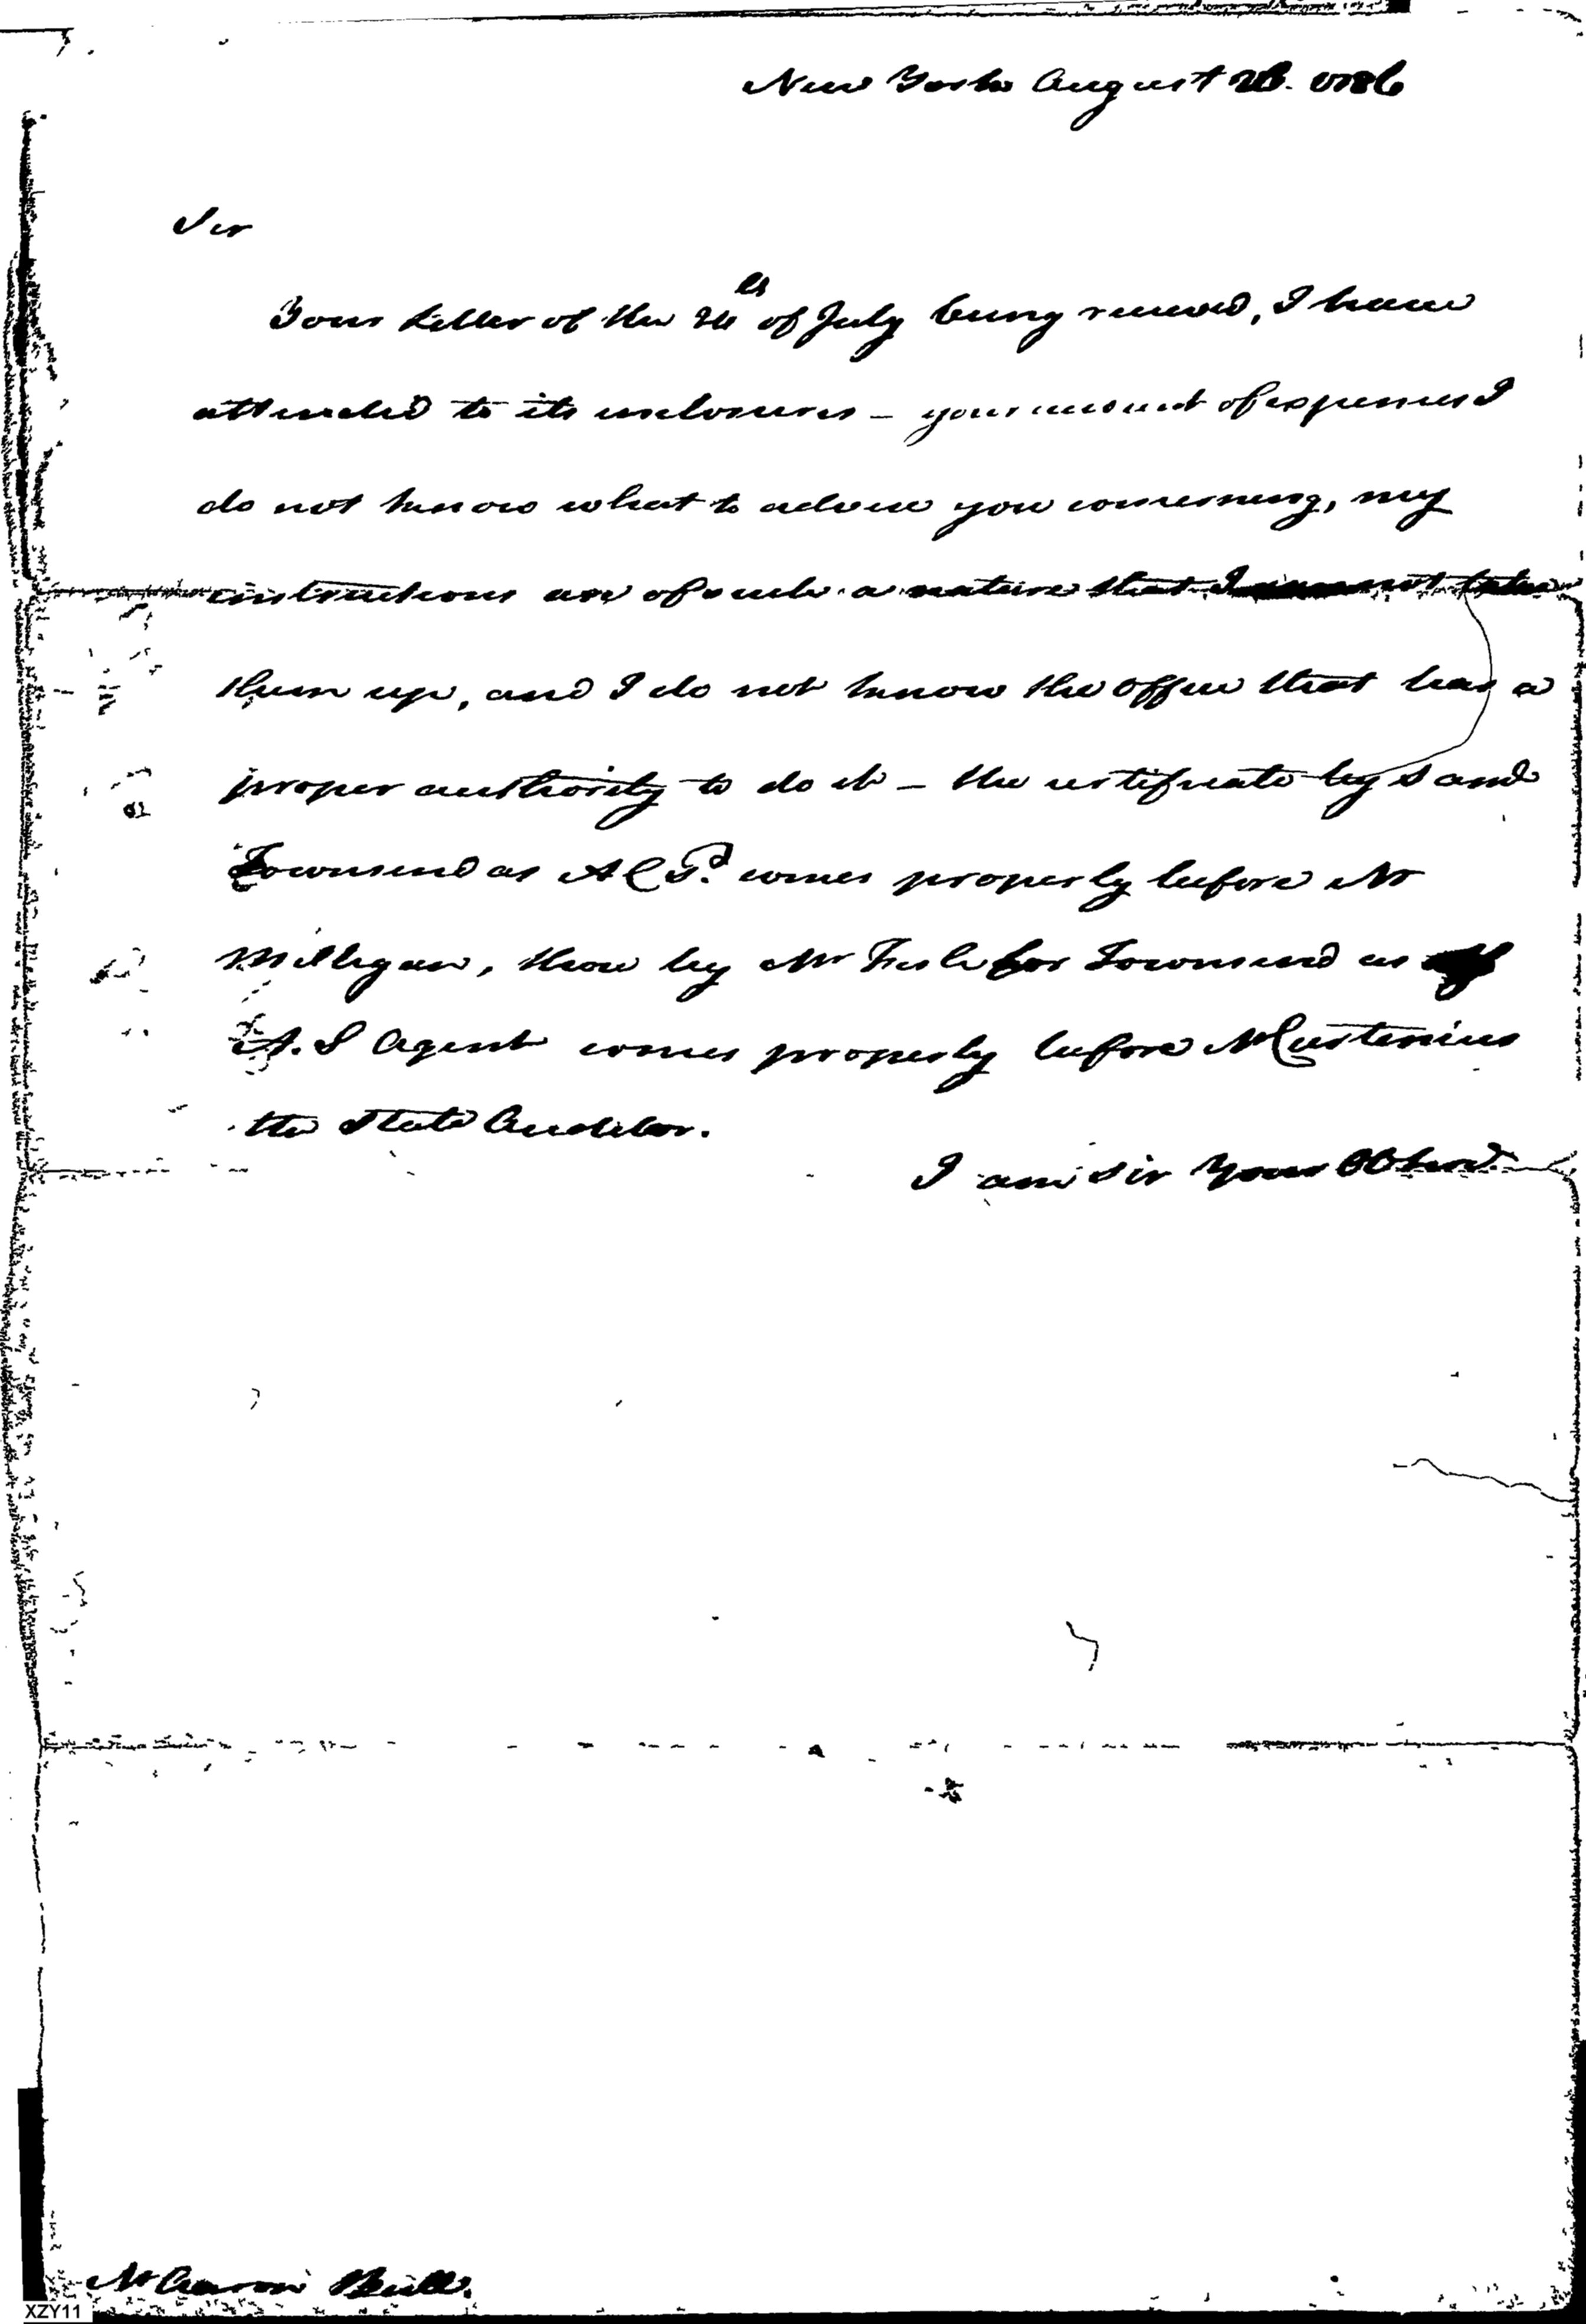 New York August 28. 1786
Sir
Your Letter of the 24th of July being received, I have
attended to its inclosures – your account of expences I
do not know what to advise you concerning, my
instructions are of such a nature that I cannot take
them up, and I do not know the office that has a
proper authority to do it – the certificate by Sand
Townsend as A C P. comes properly before Mr
Milligan, those by Mr for Townsend as
A. S Agent comes properly before Mr
the State Auditor.
I am Sir Your
Mr Aaron
XZY11